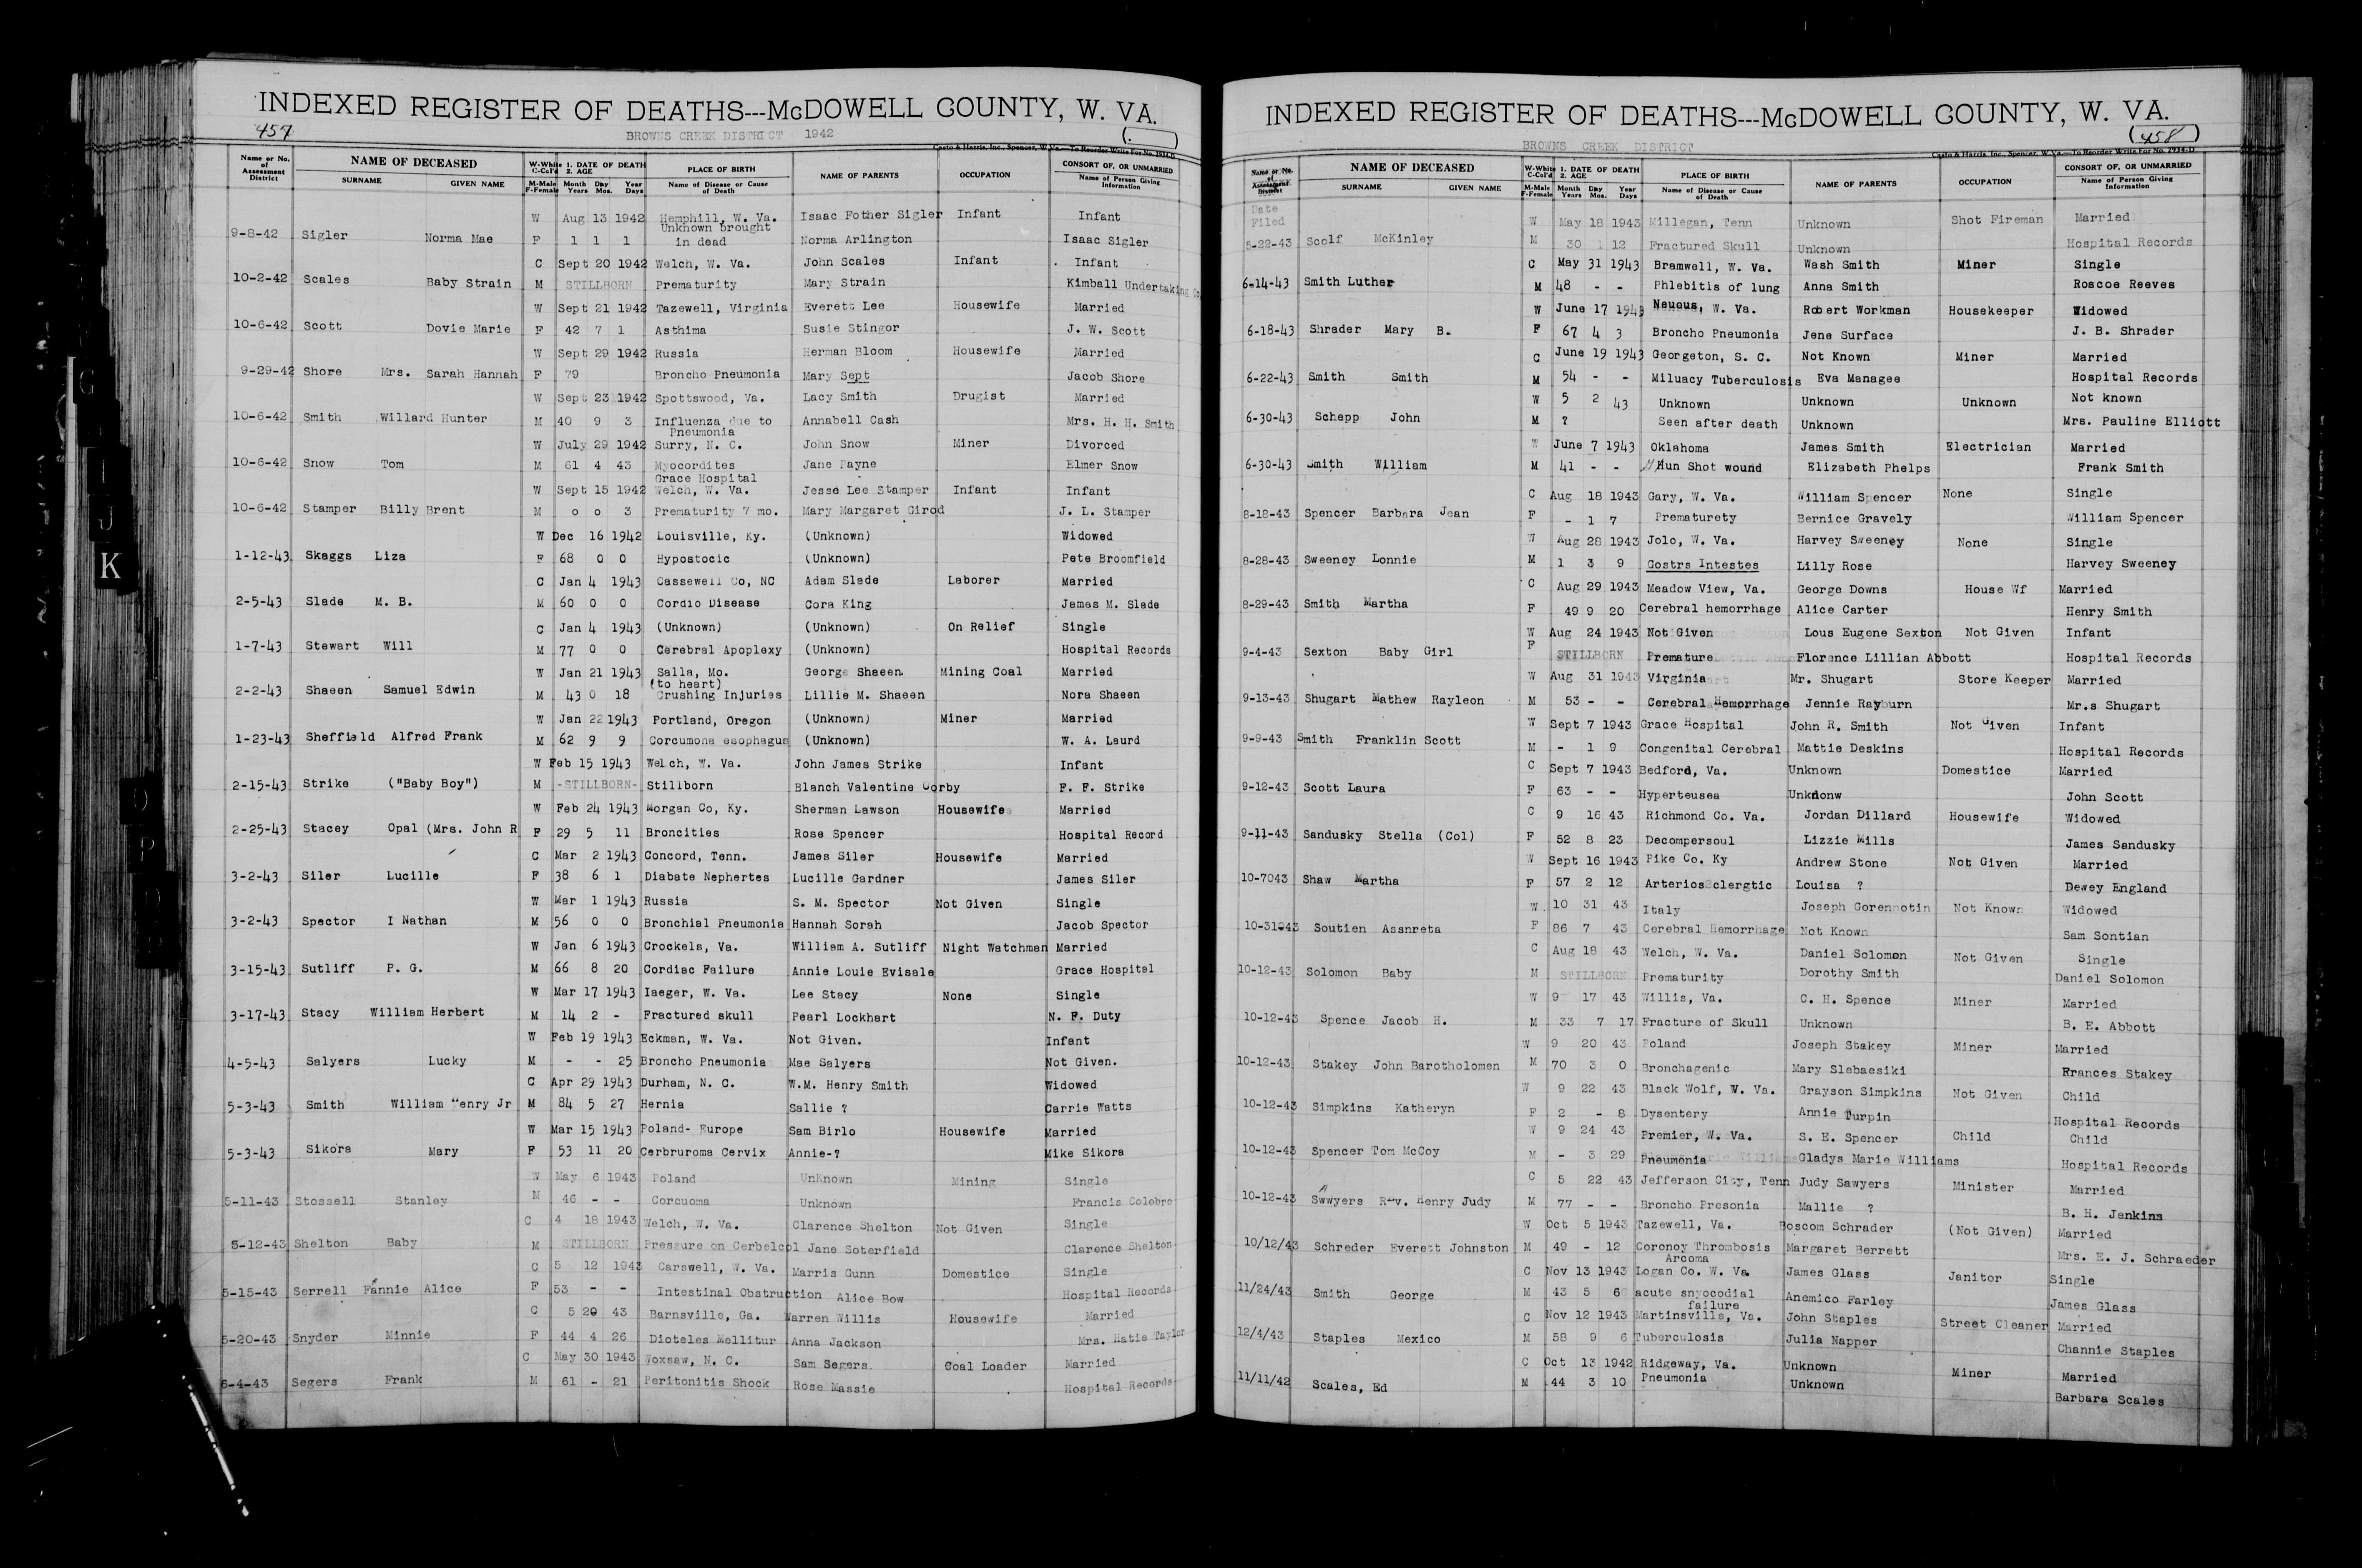 INDEXED REGISTER OF DEATHS---McDOWELL COUNTY, W. VA.
457
BROWNS CREEK DISTRICT 1942
Casto & Harris, Inc., Spencer, W. Va.—To Reorder Write For No. 7934-D
Name or No. of Assessment District NAME OF DECEASED SURNAME GIVEN NAME W-White C-Col'd M-Male F-Female 1. DATE OF DEATH 2. AGE Month Day Year Years Mos. Days PLACE OF BIRTH Name of Disease or Cause of Death NAME OF PARENTS OCCUPATION CONSORT OF, OR UNMARRIED Name of Person Giving Information
W Aug 13 1942 Hemphill, W. Va. Isaac Fother Sigler Infant Infant
Unkhown brought
9-8-42 Sigler Norma Mae F 1 1 1 in dead Norma Arlington Isaac Sigler
C Sept 20 1942 Welch, W. Va. John Scales Infant Infant
10-2-42 Scales Baby Strain M STILLBORN Prematurity Mary Strain Kimball Undertaking Co
W Sept 21 1942 Tazewell, Virginia Everett Lee Housewife Married
10-6-42 Scott Dovie Marie F 42 7 1 Asthima Susie Stingor J. W. Scott
W Sept 29 1942 Russia Herman Bloom Housewife Married
9-29-42 Shore Mrs. Sarah Hannah F 79 Broncho Pneumonia Mary Sept Jacob Shore
W Sept 23 1942 Spottswood, Va. Lacy Smith Drugist Married
10-6-42 Smith Willard Hunter M 40 9 3 Influenza due to Annabell Cash Mrs. H. H. Smith
Pneumonia
W July 29 1942 Surry, N. C. John Snow Miner Divorced
10-6-42 Snow Tom M 61 4 43 Myocordites Jane Payne Elmer Snow
Grace Hospital
W Sept 15 1942 Welch, W. Va. Jesse Lee Stamper Infant Infant
10-6-42 Stamper Billy Brent M 0 0 3 Prematurity 7 mo. Mary Margaret Girod J. L. Stamper
W Dec 16 1942 Louisville, Ky. (Unknown) Widowed
1-12-43 Skaggs Liza F 68 0 0 Hypostocic (Unknown) Pete Broomfield
C Jan 4 1943 Cassewell Co, NC Adam Slade Laborer Married
2-5-43 Slade M. B. M 60 0 0 Cordio Disease Cora King James M. Slade
C Jan 4 1943 (Unknown) (Unknown) On Relief Single
1-7-43 Stewart Will M 77 0 0 Cerebral Apoplexy (Unknown) Hospital Records
W Jan 21 1943 Salla, Mo. George Shaeen Mining Coal Married
(to heart)
2-2-43 Shaeen Samuel Edwin M 43 0 18 Crushing Injuries Lillie M. Shaeen Nora Shaeen
W Jan 22 1943 Portland, Oregon (Unknown) Miner Married
1-23-43 Sheffield Alfred Frank M 62 9 9 Corcumona esophagus (Unknown) W. A. Laurd
W Feb 15 1943 Welch, W. Va. John James Strike Infant
2-15-43 Strike ("Baby Boy") M -STILLBORN- Stillborn Blanch Valentine Corby F. F. Strike
W Feb 24 1943 Morgan Co, Ky. Sherman Lawson Housewife Married
2-25-43 Stacey Opal (Mrs. John R F 29 5 11 Broncities Rose Spencer Hospital Record
C Mar 2 1943 Concord, Tenn. James Siler Housewife Married
3-2-43 Siler Lucille F 38 6 1 Diabate Nephertes Lucille Gardner James Siler
W Mar 1 1943 Russia S. M. Spector Not Given Single
3-2-43 Spector I Nathan M 56 0 0 Bronchial Pneumonia Hannah Sorah Jacob Spector
W Jan 6 1943 Crockels, Va. William A. Sutliff Night Watchman Married
3-15-43 Sutliff P. G. M 66 8 20 Cordiac Failure Annie Louie Evisale Grace Hospital
W Mar 17 1943 Iaeger, W. Va. Lee Stacy None Single
3-17-43 Stacy William Herbert M 14 2 - Fractured skull Pearl Lockhart N. F. Duty
W Feb 19 1943 Eckman, W. Va. Not Given. Infant
4-5-43 Salyers Lucky M - - 25 Broncho Pneumonia Mae Salyers Not Given.
C Apr 29 1943 Durham, N. C. W.M. Henry Smith Widowed
5-3-43 Smith William Henry Jr M 84 5 27 Hernia Sallie ? Carrie Watts
W Mar 15 1943 Poland- Europe Sam Birlo Housewife Married
5-3-43 Sikora Mary F 53 11 20 Cerbruroma Cervix Annie-? Mike Sikora
W May 6 1943 Poland UnKnown Mining Single
5-11-43 Stossell Stanley M 46 - - Corcuoma Unknown Francis Colobro
C 4 18 1943 Welch, W. Va. Clarence Shelton Not Given Single
5-12-43 Shelton Baby M STILLBORN Pressure on Cerbelcol Jane Soterfield Clarence Shelton
C 5 12 1943 Carswell, W. Va. Marris Gunn Domestice Single
5-15-43 Serrell Fannie Alice F 53 - - Intestinal Obstruction Alice Bow Hospital Records
C 5 20 43 Barnsville, Ga. Warren Willis Housewife Married
5-20-43 Snyder Minnie F 44 4 26 Dioteles Mellitur Anna Jackson Mrs. Hatie Taylor
C May 30 1943 Woxsaw, N. C. Sam Segers Coal Loader Married
6-4-43 Segers Frank M 61 - 21 Peritonitis Shock Rose Massie Hospital Records
INDEXED REGISTER OF DEATHS---McDOWELL COUNTY, W. VA.
(458)
BROWNS CREEK DISTRICT
Casto & Harris, Inc., Spencer, W. Va.—To Reorder Write For No. 7934-D
Name or No. of Assessment District NAME OF DECEASED SURNAME GIVEN NAME W-White C-Col'd M-Male F-Female 1. DATE OF DEATH 2. AGE Month Day Year Years Mos. Days PLACE OF BIRTH Name of Disease or Cause of Death NAME OF PARENTS OCCUPATION CONSORT OF, OR UNMARRIED Name of Person Giving Information
Date
Filed W May 18 1943 Millegan, Tenn Unknown Shot Fireman Married
5-22-43 Scolf McKinley M 30 1 12 Fractured Skull Unknown Hospital Records
C May 31 1943 Bramwell, W. Va. Wash Smith Miner Single
6-14-43 Smith Luther M 48 - - Phlebitis of lung Anna Smith Roscoe Reeves
W June 17 1943 Neuous, W. Va. Robert Workman Housekeeper Widowed
6-18-43 Shrader Mary B. F 67 4 3 Broncho Pneumonia Jene Surface J. B. Shrader
C June 19 1943 Georgeton, S. C. Not Known Miner Married
6-22-43 Smith Smith M 54 - - Miluacy Tuberculosis Eva Managee Hospital Records
W 5 2 43 Unknown Unknown Unknown Not known
6-30-43 Schepp John M ? Seen after death Unknown Mrs. Pauline Elliott
W June 7 1943 Oklahoma James Smith Electrician Married
6-30-43 Smith William M 41 - - Hun Shot wound Elizabeth Phelps Frank Smith
C Aug 18 1943 Gary, W. Va. William Spencer None Single
8-18-43 Spencer Barbara Jean F - 1 7 Prematurety Bernice Gravely William Spencer
W Aug 28 1943 Jolo, W. Va. Harvey Sweeney None Single
8-28-43 Sweeney Lonnie M 1 3 9 Gostrs Intestes Lilly Rose Harvey Sweeney
C Aug 29 1943 Meadow View, Va. George Downs House Wf Married
8-29-43 Smith Martha F 49 9 20 Cerebral hemorrhage Alice Carter Henry Smith
W Aug 24 1943 Not Given Lous Eugene Sexton Not Given Infant
9-4-43 Sexton Baby Girl F STILLBORN Premature Florence Lillian Abbott Hospital Records
W Aug 31 1943 Virginia Mr. Shugart Store Keeper Married
9-13-43 Shugart Mathew Rayleon M 53 - - Cerebral Hemorrhage Jennie Rayburn Mr.s Shugart
W Sept 7 1943 Grace Hospital John R. Smith Not Given Infant
9-9-43 Smith Franklin Scott M - 1 9 Congenital Cerebral Mattie Deskins Hospital Records
C Sept 7 1943 Bedford, Va. Unknown Domestice Married
9-12-43 Scott Laura F 63 - - Hyperteusea Unkdonw John Scott
C 9 16 43 Richmond Co. Va. Jordan Dillard Housewife Widowed
9-11-43 Sandusky Stella (Col) F 52 8 23 Decompersoul Lizzie Mills James Sandusky
W Sept 16 1943 Pike Co. Ky Andrew Stone Not Given Married
10-7043 Shaw Martha F 57 2 12 Arterios clergtic Louisa ? Dewey England
W 10 31 43 Italy Joseph Gorennotin Not Known Widowed
10-31043 Soutien Assnreta F 86 7 43 Cerebral Hemorrhage Not Known Sam Sontian
C Aug 18 43 Welch, W. Va. Daniel Solomon Not Given Single
10-12-43 Solomon Baby M STILLBORN Prematurity Dorothy Smith Daniel Solomon
W 9 17 43 Willis, Va. C. H. Spence Miner Married
10-12-43 Spence Jacob H. M 33 7 17 Fracture of Skull Unknown B. E. Abbott
W 9 20 43 Poland Joseph Stakey Miner Married
10-12-43 Stakey John Barotholomen M 70 3 0 Bronchagenic Mary Slebaesiki Frances Stakey
W 9 22 43 Black Wolf, W. Va. Grayson Simpkins Not Given Child
10-12-43 Simpkins Katheryn F 2 - 8 Dysentery Annie Turpin Hospital Records
W 9 24 43 Premier, W. Va. S. E. Spencer Child Child
10-12-43 Spencer Tom McCoy M - 3 29 Pneumonia Gladys Marie Williams Hospital Records
C 5 22 43 Jefferson City, Tenn Judy Sawyers Minister Married
10-12-43 Swwyers Rev. Henry Judy M 77 - - Broncho Presonia Mallie ? B. H. Jenkins
W Oct 5 1943 Tazewell, Va. Boscom Schrader (Not Given) Married
10/12/43 Schreder Everett Johnston M 49 - 12 Coronoy Thrombosis Margaret Berrett Mrs. E. J. Schraeder
Arcoma
C Nov 13 1943 Logan Co. W. Va. James Glass Janitor Single
11/24/43 Smith George M 43 5 6 acute snyocodial Anemico Farley James Glass
failure
C Nov 12 1943 Martinsville, Va. John Staples Street Cleaner Married
12/4/43 Staples Mexico M 58 9 6 Tuberculosis Julia Napper Channie Staples
C Oct 13 1942 Ridgeway, Va. Unknown Miner Married
11/11/42 Scales, Ed M 44 3 10 Pneumonia Unknown Barbara Scales
G
I
J
K
O
P